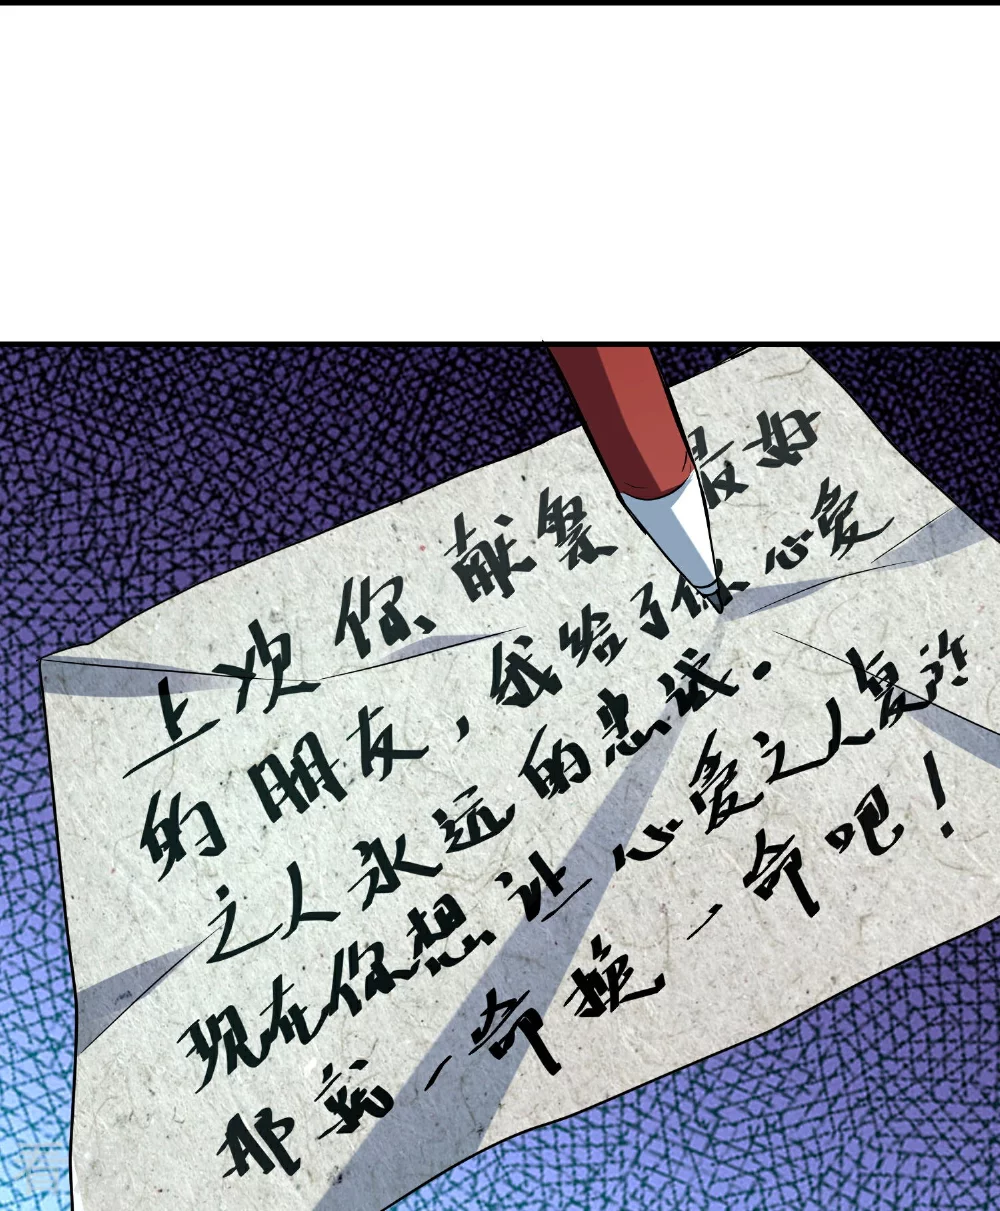 上次你献祭最好
的朋友，我给了你心爱
之人永远的忠诚.
现在你想让心爱之人复活
那就一命换一命吧！